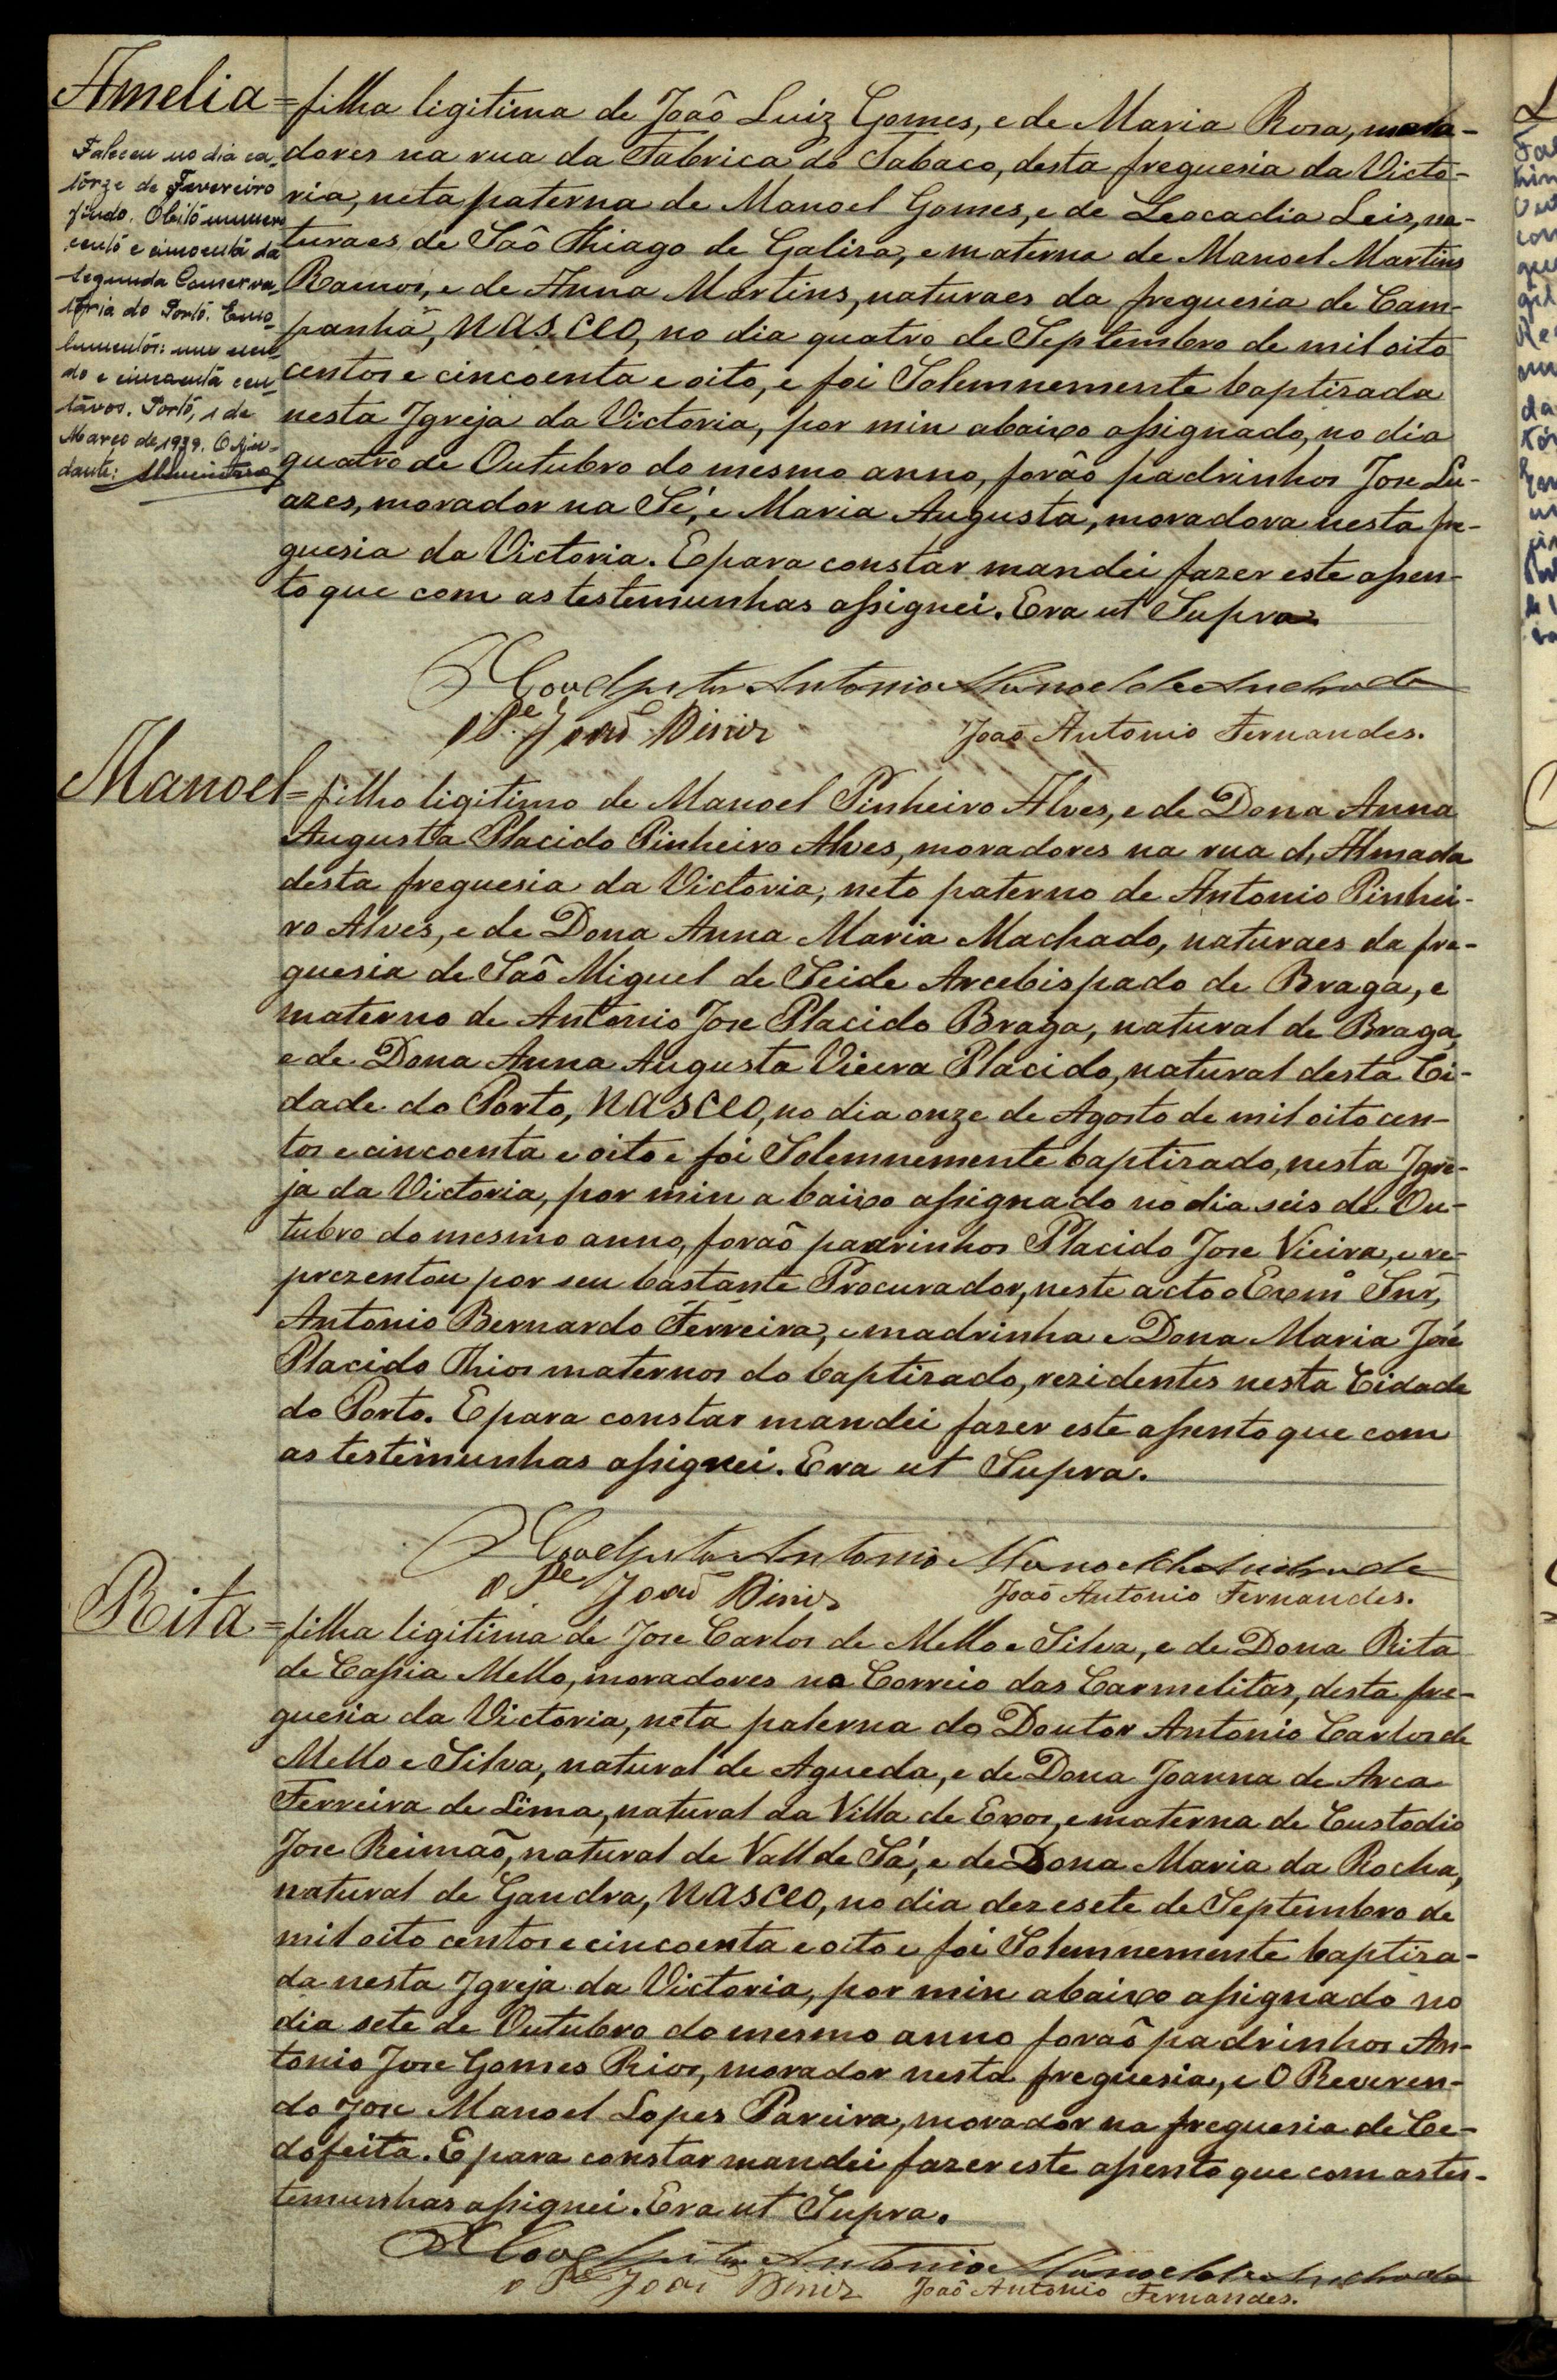 Amelia = filha ligitima de João Luiz Gomes, e de Maria Rosa, mora-
dores na rua da Fabrica do Tabaco, desta freguesia da Victo-
ria, neta paterna de Manoel Gomes, e de Leocadia Leis, na-
turaes de São Thiago de Galisa, e materna de Manoel Martins
Ramos, e de Anna Martins, naturaes da freguesia de Cam-
panhã, nasceo, no dia quatro de Septembro de mil oito
centos e cincoenta e oito, e foi Solemnemente baptisada
nesta Igreja da Victoria, por min abaixo assignado, no dia
quatro de Outubro do mesmo anno, forão padrinhos Jose Lu-
azes, morador na Sé, e Maria Augusta, moradora nesta fre-
guesia da Victoria. E para constar mandei fazer este assen-
to que com as testemunhas assignei. Era ut Supra.
Faleceu no dia ca-
torze de Fevereiro
findo. Obitó numero
centó e cincoentá da
segunda Conserva-
tória do Portó. Emo-
lumentós: um escu-
do e cincoentá cen-
távos. Portó, 1 de
Março de 1939. O Aju-
dante:
O Coadjutor Antonio Manoel de Andrade
o Pe. João Diniz
João Antonio Fernandes.
Manoel = filho ligitimo de Manoel Pinheiro Alves, e de Dona Anna
Augusta Placido Pinheiro Alves, moradores na rua d, Almada
desta freguesia da Victoria, neto paterno de Antonio Pinhei-
ro Alves, e de Dona Anna Maria Machado, naturaes da fre-
guesia de São Miguel de Seide Arcebispado de Braga, e
materno de Antonio Jose Placido Braga, natural de Braga,
e de Dona Anna Augusta Vieira Placido, natural desta Ci-
dade do Porto, nasceo, no dia onze de Agosto de mil oito cen-
tos e cincoenta e oito e foi Solemnemente baptisado, nesta Igre-
ja da Victoria, por min abaixo assignado no dia seis de Ou-
tubro do mesmo anno, forão padrinhos Placido Jose Vieira, e re-
prezentou por seu bastante Procurador, neste acto o Exmº Snr,
Antonio Bernardo Ferreira, e madrinha e Dona Maria José
Placido Thios maternos do baptisado, rezidentes nesta Cidade
do Porto. E para constar mandei fazer este assento que com
as testemunhas assignei. Era ut Supra.
O Coadjutor Antonio Manoel de Andrade
o Pe João Diniz
João Antonio Fernandes.
Rita = filha ligitima de Jose Carlos de Mello e Silva, e de Dona Rita
de Cassia Mello, moradores no Correio das Carmelitas, desta fre-
guesia da Victoria, neta paterna do Doutor Antonio Carlos de
Mello e Silva, natural de Agueda, e de Dona Joanna de Arca
Ferreira de Lima, natural da Villa de Exos, e materna de Custodio
Jose Reimão, natural de Vall de Sá, e de Dona Maria da Rocha,
natural de Gandra, nasceo, no dia dezesete de Septembro de
mil oito centos e cincoenta e oito e foi Solemnemente baptisa-
da nesta Igreja da Victoria, por min abaixo assignado no
dia sete de Outubro do mesmo anno forão padrinhos An-
tonio Jose Gomes Rios, morador nesta freguesia, e O Reveren-
do Jose Manoel Lopes Pareira, morador na freguesia de Ce-
dofeita. E para constar mandei fazer este assento que com as tes-
temunhas assignei. Era ut Supra.
O Coadjutor Antonio Manoel de Andrade
o Pe João Diniz
João Antonio Fernandes.